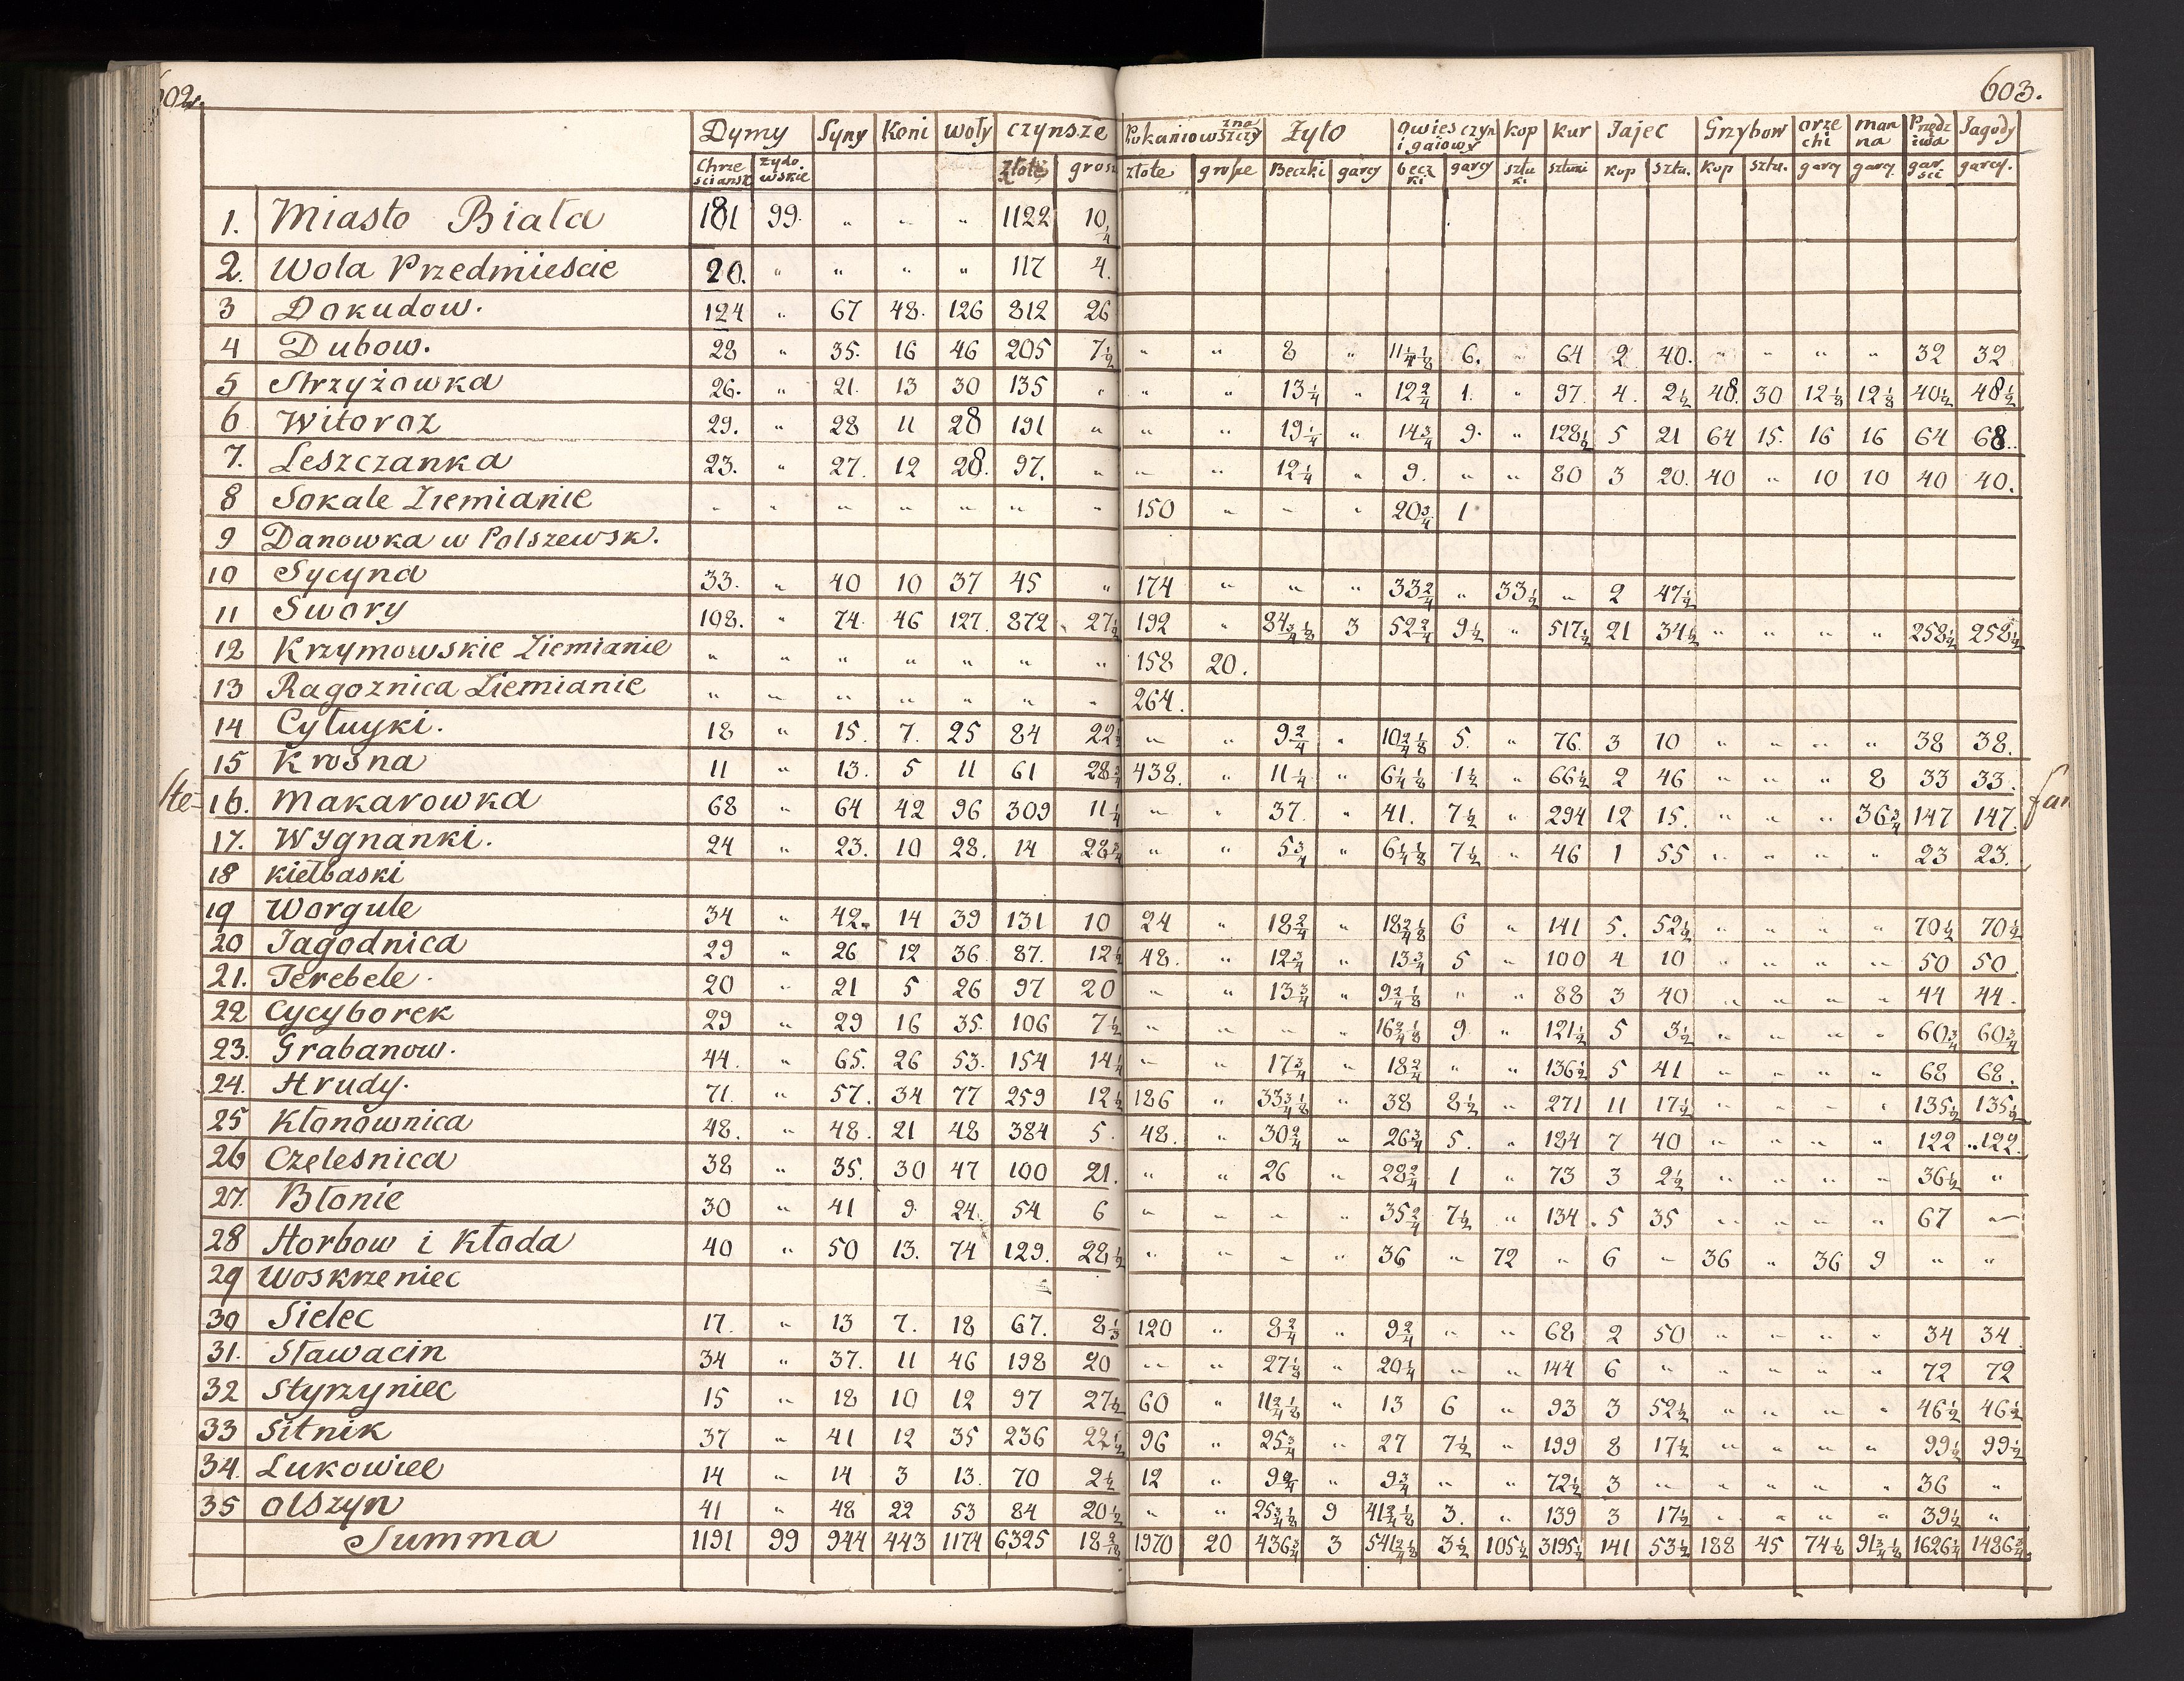 602.
603.
Dymy Syny Koni woły czynsze Pokaniowszczyzna Żyto owies czyn i gaiowy kop kur Jajec Grzybow orzechi manna Przędziwa Jagody
Chrześcianst żydowskie złote grosz złote grosze Beczki garcy beczki garcy sztuki sztuki kop sztu. kop sztu. garcy garcy garści garcy.
1. Miasto Biała 181 99. " " " 1122 10 1/4
2. Wola Przedmieście 20. " " " " 117 4.
3 Dokudow. 124 " 67 48. 126 812 26
4 Dubow. 28 " 35. 16 46 205 7 1/2 " " 8 " 11 1/4 1/8 6. " 64 2 40. " " " " 32 32
5 Strzyżowka 26. " 21. 13 30 135 " " " 13 1/4 " 12 2/4 1. " 97. 4. 2 1/2 48. 30 12 1/8 12 1/8 40 1/2 48 1/2
6 Witoroz 29. " 28 11 28 191 " " " 19 1/4 " 14 3/4 9. " 128 1/2 5 21 64 15. 16 16 64 68.
7. Leszczanka 23. " 27. 12 28. 97. " " " 12 1/4 " 9. " " 80 3 20. 40 " 10 10 40 40.
8 Sokale Ziemianie " " " " " " " 150 " " " 20 3/4 1
9 Danowka w Polszewsk.
10 Sycyna 33. " 40 10 37 45 " 174 " " " 33 2/4 " 33 1/2 " 2 47 1/2
11 Swory 108. " 74. 46 127. 872 27 1/2 192 " 84 3/4 1/8 3 52 2/4 9 1/2 " 517 1/2 21 34 1/2 " " " " 258 1/2 258 1/2
12 Krzymowskie Ziemianie " " " " " " " 158 20.
13 Ragoznica Ziemianie " " " " " " " 264.
14 Cytuyki. 18 " 15. 7. 25 84 22 1/2 " " 9 2/4 " 10 2/4 1/8 5. " 76. 3 10 " " " " 38 38.
15 Krosna 11 " 13. 5 11 61 28 3/4 438. " 11 1/4 " 6 1/4 1/8 1 1/2 " 66 1/2 2 46 " " " 8 33 33.
16. Makarowka 68 " 64 42 96 309 11 1/4 " " 37. " 41. 7 1/2 " 294 12 15. " " " 36 3/4 147 147.
17. Wygnanki. 24 " 23. 10 28. 14 28 3/4 " " 5 3/4 " 6 1/4 1/8 7 1/2 " 46 1 55 " " " " 23 23.
18 kiełbaski
19 Worgule 34 " 42. 14 39 131 10 24 " 18 2/4 " 18 2/4 1/8 6 " 141 5. 52 1/2 " " " " 70 1/2 70 1/2
20 Jagodnica 29 " 26 12 36. 87. 12 1/2 48. " 12 3/4 " 13 3/4 5 " 100 4 10 " " " " 50 50.
21. Terebele. 20 " 21 5 26 97 20 " " 13 3/4 " 9 2/4 1/8 " " 88 3 40 " " " " 44 44.
22 Cycyborek 29 " 29 16 35. 106 7 1/2 " " " " 16 2/4 1/8 9. " 121 1/2 5 3 1/2 " " " " 60 3/4 60 3/4
23. Grabanow. 44. " 65. 26 53. 154 14 1/4 " " 17 3/4 " 18 2/4 " " 136 1/2 5 41 " " " " 68 68.
24. Hrudy. 71. " 57. 34 77 259 12 1/2 186 " 33 3/4 1/8 " 38 8 1/2 " 271 11 17 1/2 " " " " 135 1/2 135 1/2
25 Kłonownica 48. " 48. 21 48 384 5. 48. " 30 2/4 " 26 3/4 5. " 184 7 40 " " " " 122 122.
26 Czelesnica 38 " 35. 30 47 100 21. " " 26 " 28 2/4 1 " 73 3 2 1/2 " " " " 36 1/2 "
27. Błonie 30 " 41 9. 24. 54 6 " " " " 35 2/4 7 1/2 " 134. 5 35 " " " " 67 "
28 Horbow i Kłoda 40 " 50 13. 74 129. 28 1/2 " " " " 36 " 72 " 6 " 36 " 36 9 " "
29 Woskrzeniec
30 Sielec 17. " 13 7. 18 67. 8 1/3 120 " 8 2/4 " 9 2/4 " " 68 2 50 " " " " 34 34.
31. Sławacin 34 " 37. 11 46 198 20 " " 27 1/8 " 20 1/4 " " 144 6 " " " " " 72 72
32 Styrzyniec 15 " 18 10 12 97 27 1/2 60 " 11 2/4 1/8 " 13 6 " 93 3 52 1/2 " " " " 46 1/2 46 1/2
33 Sitnik 37 " 41 12 35 236 22 1/2 96 " 25 3/4 " 27 7 1/2 " 199 8 17 1/2 " " " " 99 1/2 99 1/2
34. Łukowiec 14 " 14 3 13. 70 2 1/2 12 " 9 2/4 " 9 3/4 " " 72 1/2 3 " " " " " 36 "
35 olszyn 41 " 48 22 53 84 20 1/2 " " 25 3/4 1/8 9 41 2/4 1/8 3. " 139 3 17 1/2 " " " " 39 1/2 "
Summa 1191 99 944 443 1174 6325 18 1970 20 436 3/4 3 541 2/4 1/8 3 1/2 105 1/2 3195 1/2 141 53 1/2 188 45 74 1/8 91 3/4 1/8 1626 1/4 1486 3/4